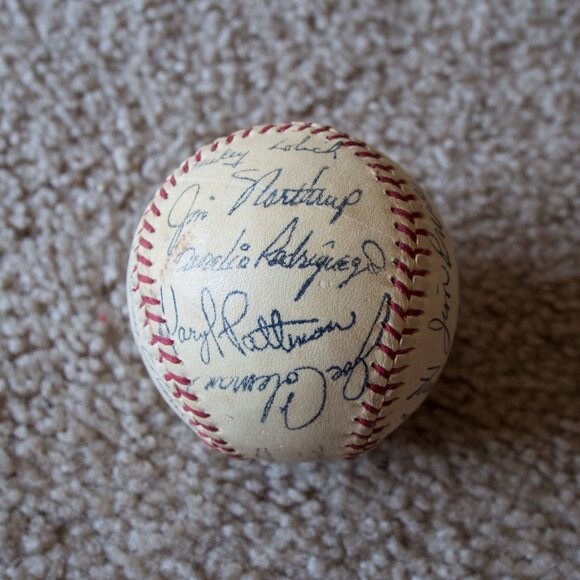 Mickey Lolich
Jim Northrup
Aurelio Rodriguez
Daryl Patterson
Joe Coleman
Jim